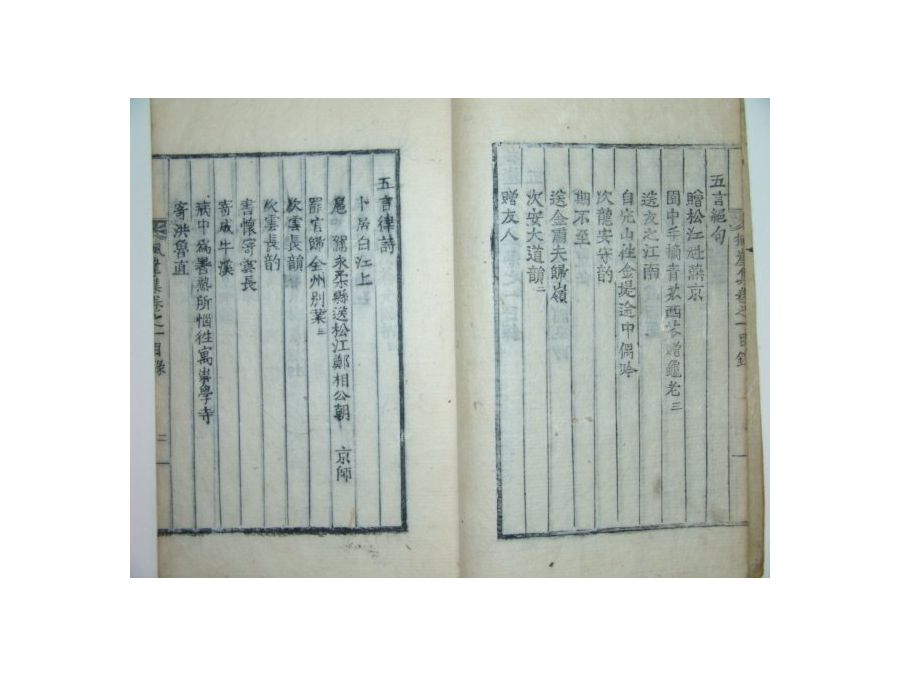 五言絕句
贈松江赴燕京
園中手摘青苽西苽贈龜老三
送友之江南
自完山往金堤途中偶吟
次龍安守韵
期不至
送金肅夫歸嶺
次安大道韻二
贈友人
五言律詩
卜居白江上
扈駕永柔縣送松江鄭相公朝 京師
罷官歸全州別業三
次雲長韻
次雲長韵
書懷寄雲長
寄成牛溪
病中爲暑熱所惱往寓崇學寺
寄洪魯直
集卷之一目錄 二
集卷之一目錄 一